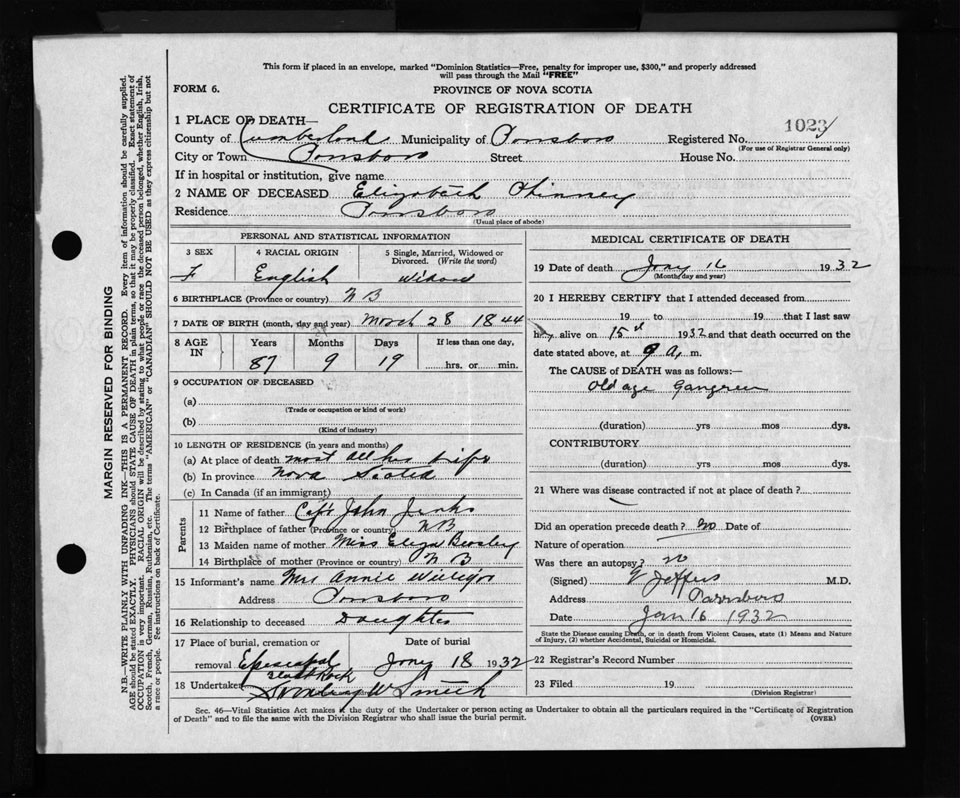 This form if placed in an envelope, marked "Dominion Statistics—Free, penalty for improper use, $300," and properly addressed
will pass through the Mail "FREE"
FORM 6.
PROVINCE OF NOVA SCOTIA
CERTIFICATE OF REGISTRATION OF DEATH
1 PLACE OF DEATH—
1023
County of Cumberland Municipality of Parrsboro Registered No.
(For use of Registrar General only)
City or Town Parrsboro Street House No.
If in hospital or institution, give name
2 NAME OF DECEASED Elizabeth
Residence Parrsboro
(Usual place of abode)
PERSONAL AND STATISTICAL INFORMATION
3 SEX 4 RACIAL ORIGIN 5 Single, Married, Widowed or Divorced. (Write the word)
F English Widow
6 BIRTHPLACE (Province or country) N B
7 DATE OF BIRTH (month, day and year) March 28 1844
8 AGE IN Years Months Days If less than one day,
87 9 19 hrs. or min.
9 OCCUPATION OF DECEASED
(a)
(Trade or occupation or kind of work)
(b)
(Kind of industry)
10 LENGTH OF RESIDENCE (in years and months)
(a) At place of death most all her life
(b) In province Nova Scotia
(c) In Canada (if an immigrant)
Parents
11 Name of father Capt John Jenks
12 Birthplace of father (Province or country) N B
13 Maiden name of mother Miss Eliza
14 Birthplace of mother (Province or country) N B
15 Informant's name Mrs Annie
Address Parrsboro
16 Relationship to deceased Daughter
17 Place of burial, cremation or removal Date of burial
Episcopal Jany 18 1932
18 Undertaker W Smith
MEDICAL CERTIFICATE OF DEATH
19 Date of death Jany 16 1932
(Month, day and year)
20 I HEREBY CERTIFY that I attended deceased from
19 to 19 that I last saw
h alive on 15th 1932 and that death occurred on the
date stated above, at 9 a. m.
The CAUSE of DEATH was as follows:—
Old age Gangrene
(duration) yrs mos dys.
CONTRIBUTORY
(duration) yrs mos dys.
21 Where was disease contracted if not at place of death?
Did an operation precede death? no Date of
Nature of operation
Was there an autopsy? no
(Signed) Jeffers M.D.
Address Parrsboro
Date Jan 16 1932
State the Disease causing Death, or in death from Violent Causes, state (1) Means and Nature
of Injury, (2) whether Accidental, Suicidal or Homicidal.
22 Registrar's Record Number
23 Filed 19
(Division Registrar)
Sec. 46—Vital Statistics Act makes it the duty of the Undertaker or person acting as Undertaker to obtain all the particulars required in the "Certificate of Registration
of Death" and to file the same with the Division Registrar who shall issue the burial permit.
(OVER)
MARGIN RESERVED FOR BINDING
N.B.—WRITE PLAINLY WITH UNFADING INK—THIS IS A PERMANENT RECORD. Every item of information should be carefully supplied.
AGE should be stated EXACTLY. PHYSICIANS should STATE CAUSE OF DEATH in plain terms, so that it may be properly classified. Exact statement of
OCCUPATION is very important. RACIAL ORIGIN will be described by stating to what people or race the deceased person belonged, whether English, Irish,
Scotch, French, German, Russian, Ruthenian, etc. The terms "AMERICAN" or "CANADIAN" SHOULD NOT BE USED as they express citizenship but not
a race or people. See instructions on back of Certificate.